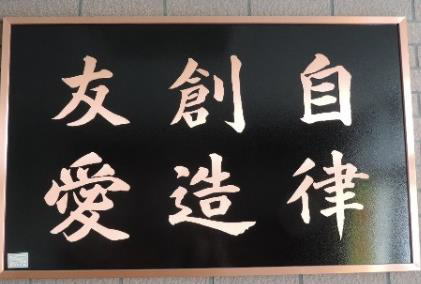 自律
創造
友愛